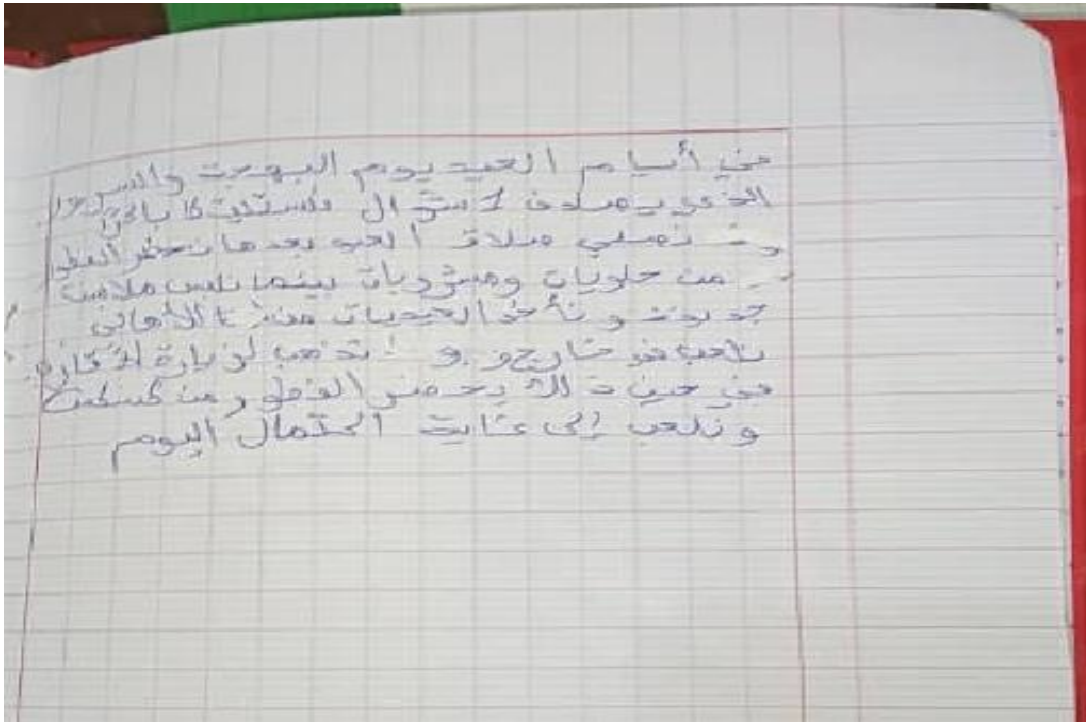 في أيام العيد يوم البهجت والسرور
الذي يصادف 1 شوال نستيقظ باكرا
نصلي صلاة العيد بعدها نحضر الفطور
من حلويات ومشروبات بينما نلبس ملابس
جديدت و نأخذ العيديات من الأهالي
نلعب في خارج و نذهب لزيارة الأقارب
في حين ذالك يحضر الفطور من كسكت
و نلعب إلى غايت اكتمال اليوم